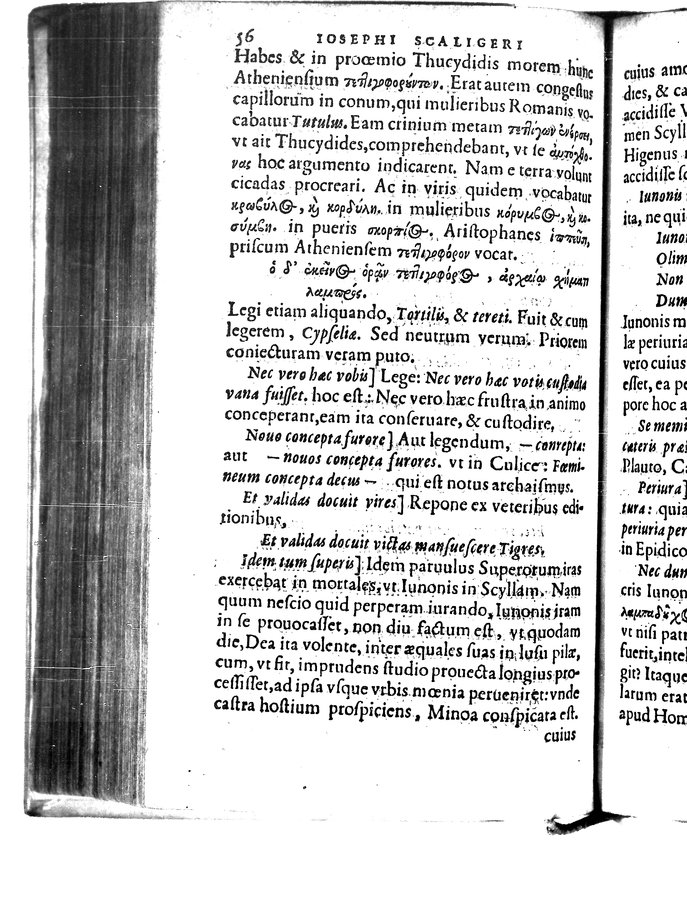 56 IOSEPHI SCALIGERI
Habes & in proœmio Thucydidis morem hunc
Atheniensium τεττιγοφορούντων. Erat autem congestus
capillorum in conum, qui mulieribus Romanis vo-
cabatur Tutulus. Eam crinium metam τεττίγων ἐνέρσει,
vt ait Thucydides, comprehendebant, vt se αὐτόχθο-
νας hoc argumento indicarent. Nam e terra volunt
cicadas procreari. Ac in viris quidem vocabatur
κρωβύλος, κὶ κορδύλη. in mulieribus κόρυμβος, κὶ κο-
σύμβη. in pueris σκορπίος. Aristophanes ἱππεῦσι,
priscum Atheniensem τεττιγοφόρον vocat.
ὁ δ' ἐκεῖνος ὁρᾷν τεττιγοφόρος, ἀρχαίῳ χήματι
λαμπρός.
Legi etiam aliquando, Tortilis, & tereti. Fuit & cum
legerem, Cypseliæ. Sed neutrum verum. Priorem
coniecturam veram puto.
Nec vero hæc vobis] Lege: Nec vero hæc votis custodia
vana fuisset. hoc est: Nec vero hæc frustra in animo
conceperant, eam ita conseruare, & custodire,
Nouo concepta furore] Aut legendum, — conrepta:
aut — nouos concepta furores. vt in Culice: Fœmi-
neum concepta decus — qui est notus archaismus.
Et validas docuit vires] Repone ex veteribus edi-
tionibus,
Et validas docuit victas mansuescere Tigres.
Idem tum superis] Idem paruulus Superorum iras
exercebat in mortales, vt Iunonis in Scyllam. Nam
quum nescio quid perperam iurando, Iunonis iram
in se prouocasset, non diu factum est, vt quodam
die, Dea ita volente, inter æquales suas in lusu pilæ,
cum, vt fit, imprudens studio prouecta longius pro-
cessisset, ad ipsa vsque vrbis mœnia perueniret: vnde
castra hostium prospiciens, Minoa conspicata est.
cuius
cuius amo
dies, & ca
accidisse V
men Scyll
Higenus r
accidisse sc
Iunonis
ita, ne qui
Iuno
Olim
Non
Dum
Iunonis m
læ periuria
vero cuius
esset, ea p
pore hoc a
Se memi
cæteris præ
Plauto, C
Periura]
tura: quia
periuria per
in Epidico
Nec dum
cris Iunon
λαμπαδ
vt nisi patr
fuerit, intel
git? Itaque
latum erat
apud Hom